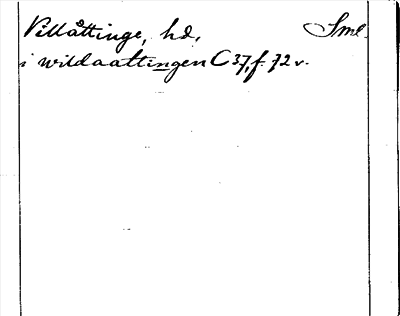 Villåttinge, hd. Sml.
i wildaattingen C 37, f. 72 v.